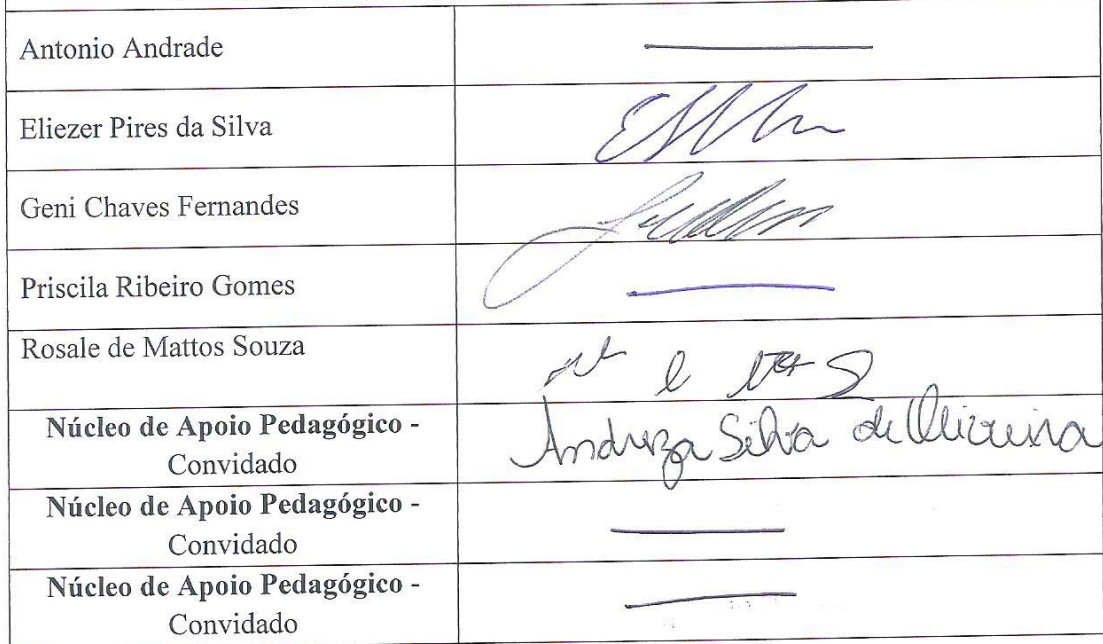 Antonio Andrade
Eliezer Pires da Silva
Geni Chaves Fernandes
Priscila Ribeiro Gomes
Rosale de Mattos Souza
Núcleo de Apoio Pedagógico -
Convidado
Andreza Silva de Oliveira
Núcleo de Apoio Pedagógico -
Convidado
Núcleo de Apoio Pedagógico -
Convidado